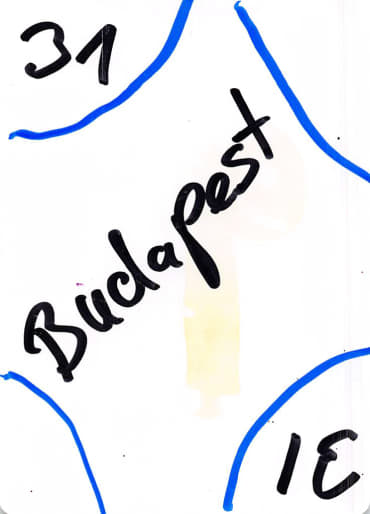 31
Budapest
31